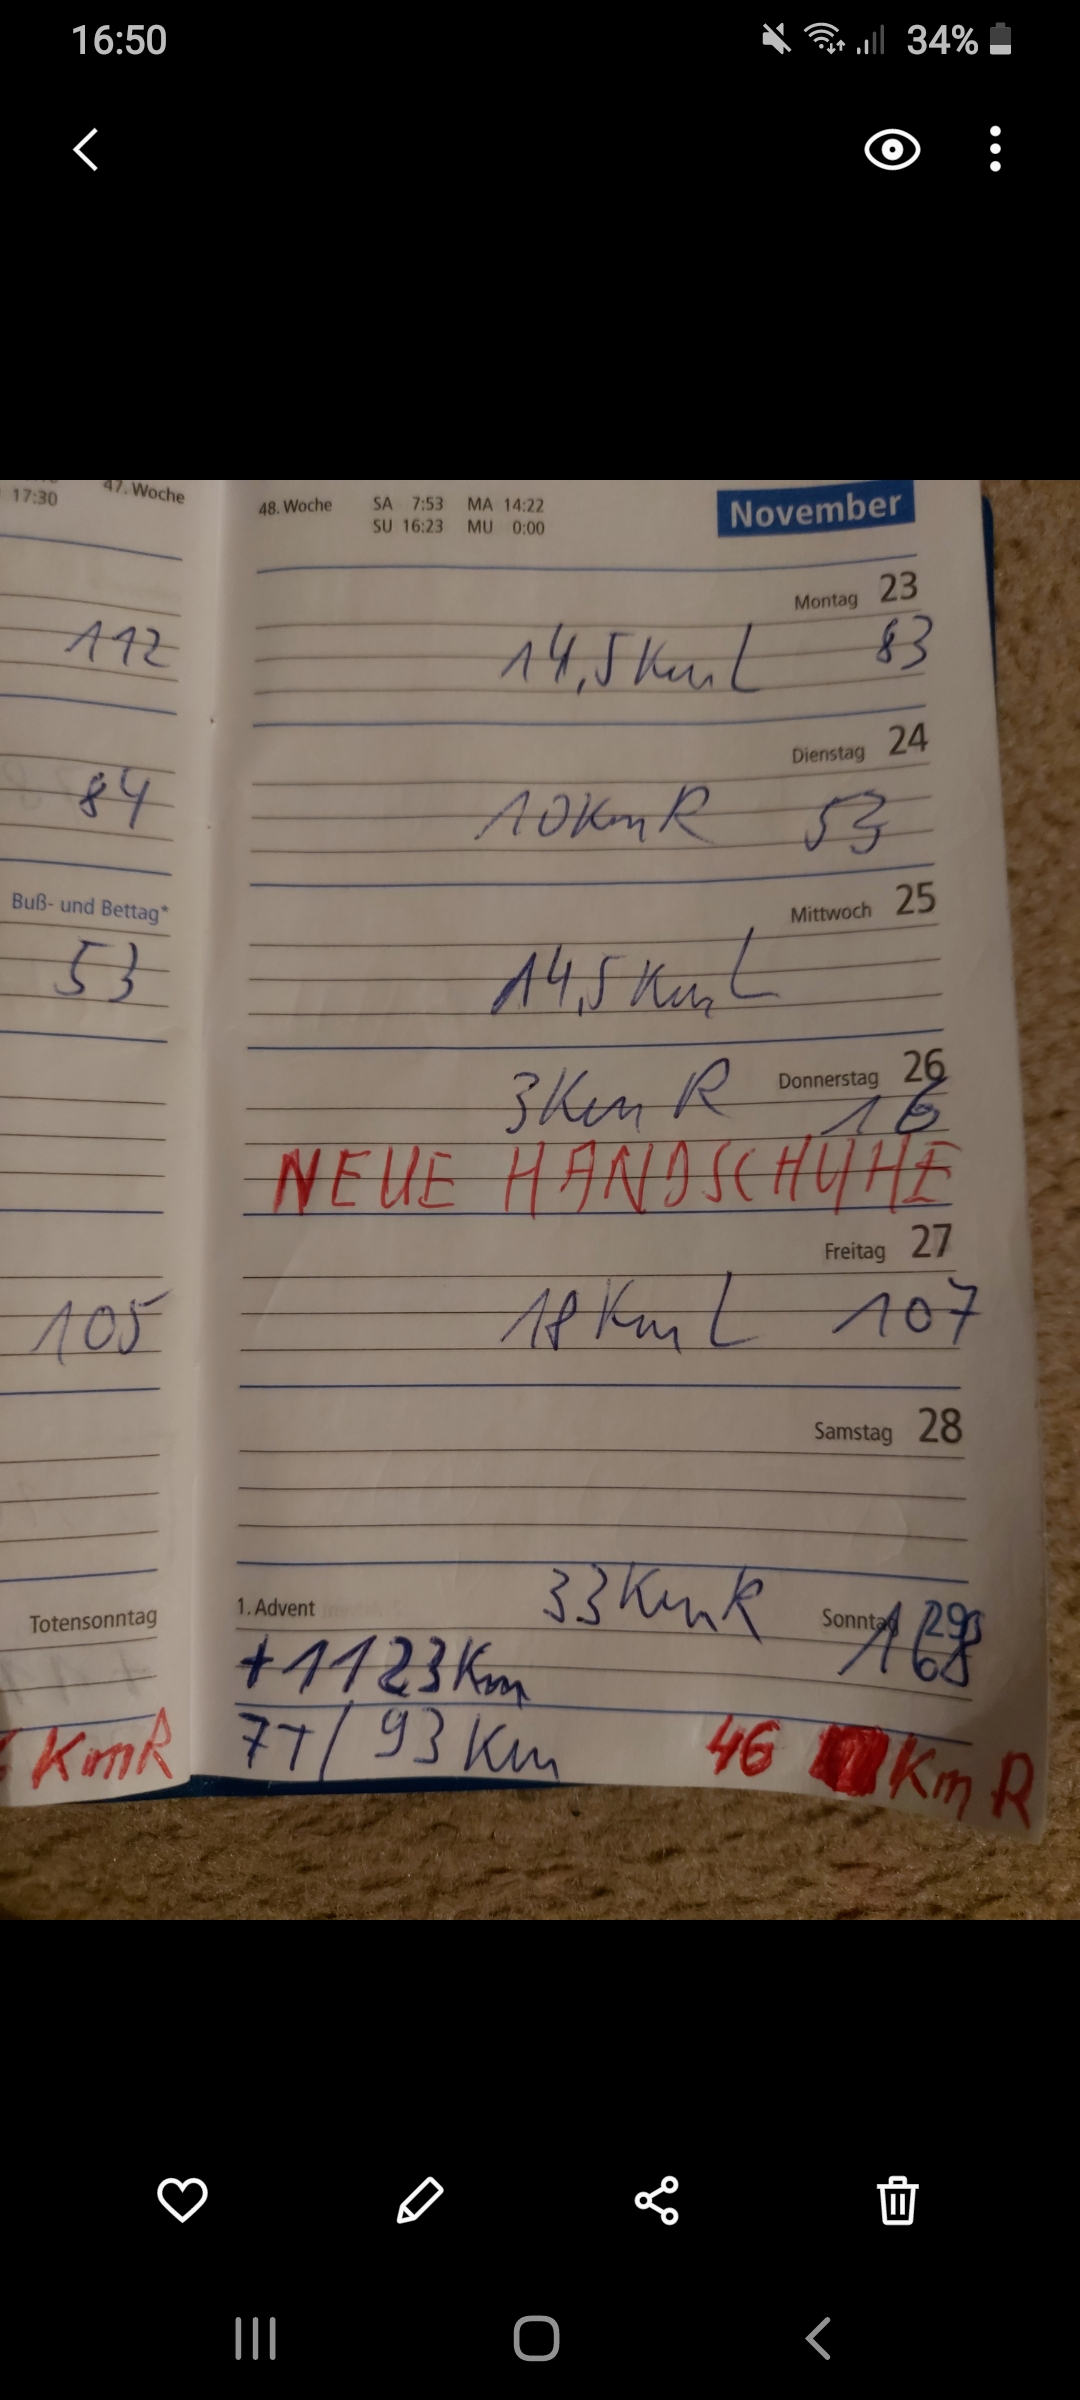 16:50
34%
17:30
47. Woche
112
84
Buß- und Bettag*
53
105
Totensonntag
KmR
48. Woche SA 7:53 MA 14:22
SU 16:23 MU 0:00
November
Montag 23
14,5 Km L 83
Dienstag 24
10 Km R 53
Mittwoch 25
14,5 Km L
Donnerstag 26
3 Km R 16
NEUE HANDSCHUHE
Freitag 27
18 Km L 107
Samstag 28
33 Km R
1. Advent Sonntag 29
168
+1123 Km
7T/ 93 Km 46 Km R